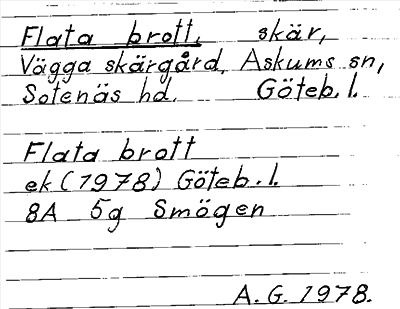 Flata brott, skär,
Vägga skärgård, Askums sn,
Sotenäs hd. Göteb. l.
Flata brott
ek (1978) Göteb. l.
8A 5g Smögen
A. G. 1978.